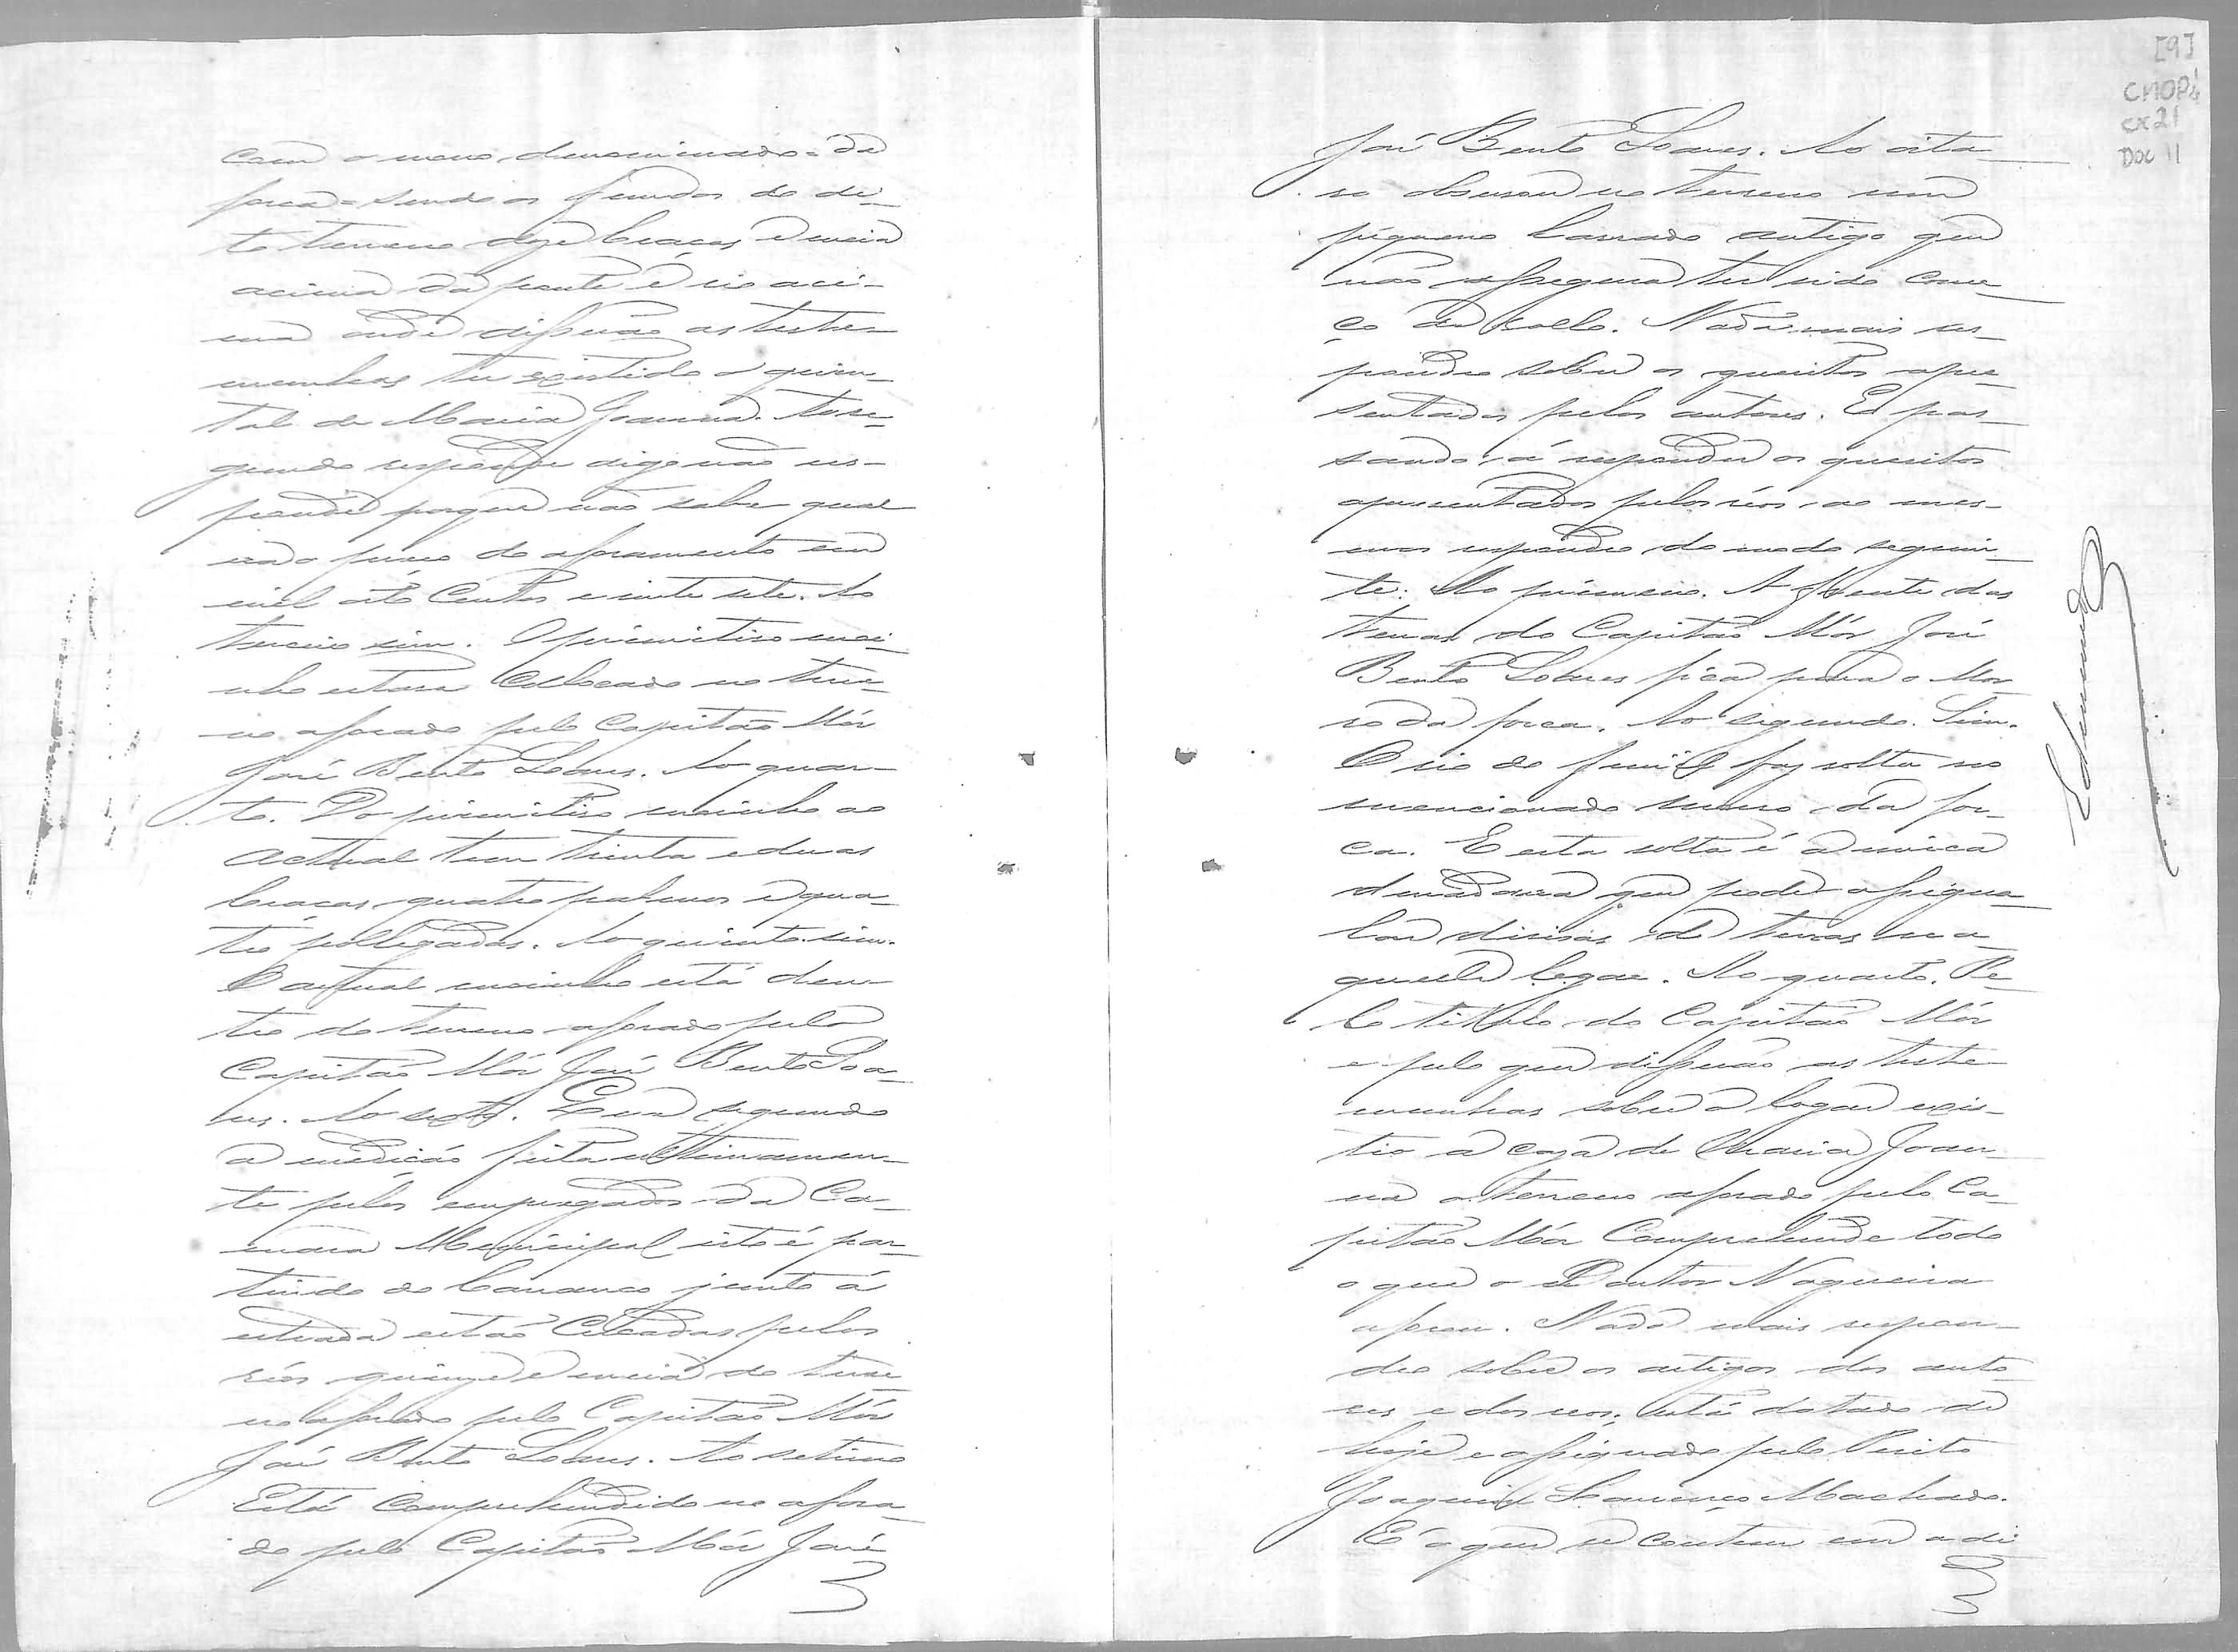 com o morro denominado = da
forca = sendo os fundos do di-
to terreno doze braças e meia
acima da ponte e rio aci-
ma onde disserão as teste-
munhas ter existido o quin-
tal de Maria Joanna. Ao se-
gundo responde digo não res-
ponde porque não sabe qual
era o fôro do aforamento em
mil oito centos e vinte sete. Ao
terceiro sim. O primitivo moi-
nho estava collocado no terre-
no aforado pelo Capitão Mór
José Bento Soares. Ao quar-
to. Do primitivo moinho ao
actual tem trinta e duas
braças quatro palmos e qua-
tro pollegadas. Ao quinto sim.
O actual moinho está den-
tro do terreno aforado pelo
Capitão Mór José Bento Soa-
res. Ao sexto. Que segundo
a medição feita ultimamen-
te pelos empregados da Ca-
mara Municipal isto é par-
tindo do barranco junto á
estrada estão cercadas pelos
réos quinze e meia do terre-
no aforado pelo Capitão Mór
José Bento Soares. Ao setimo
Está comprehendido no afora-
do pelo Capitão Mór José
[9]
CMOP
cx 21
Doc 11
José Bento Soares. Ao oita-
vo observou no terreno um
pequeno lavrado antigo que
não assegura ter sido come-
ço de vallo. Nada mais res-
pondeo sobre os quesitos apre-
sentados pelos autores. E pas-
sando á responder os quesitos
apresentados pelos réos ao mes-
mos respondeo do modo seguin-
te: Ao primeiro. A frente das
terras do Capitão Mór José
Bento Soares fica para o Mor
ro da forca. Ao segundo. Sim.
O rio do funil faz volta no
mencionado morro da for-
ca. E esta volta é a unica
demarcação que pode assigna-
lar divisas de terras na-
quelle logar. Ao quarto. Pe-
lo titulo do Capitão Mór
e pelo que disserão as teste
munhas sobre o logar exis-
tio a caza de Maria Joan-
na o terreno aforado pelo Ca-
pitão Mór comprehende todo
o que o Doutor Nogueira
aforou. Nada mais respon-
deo sobre os artigos dos auto-
res e dos reos; está datado de
hoje e assignado pelo Perito
Joaquim Lourenço Machado.
E o que se contem em a di